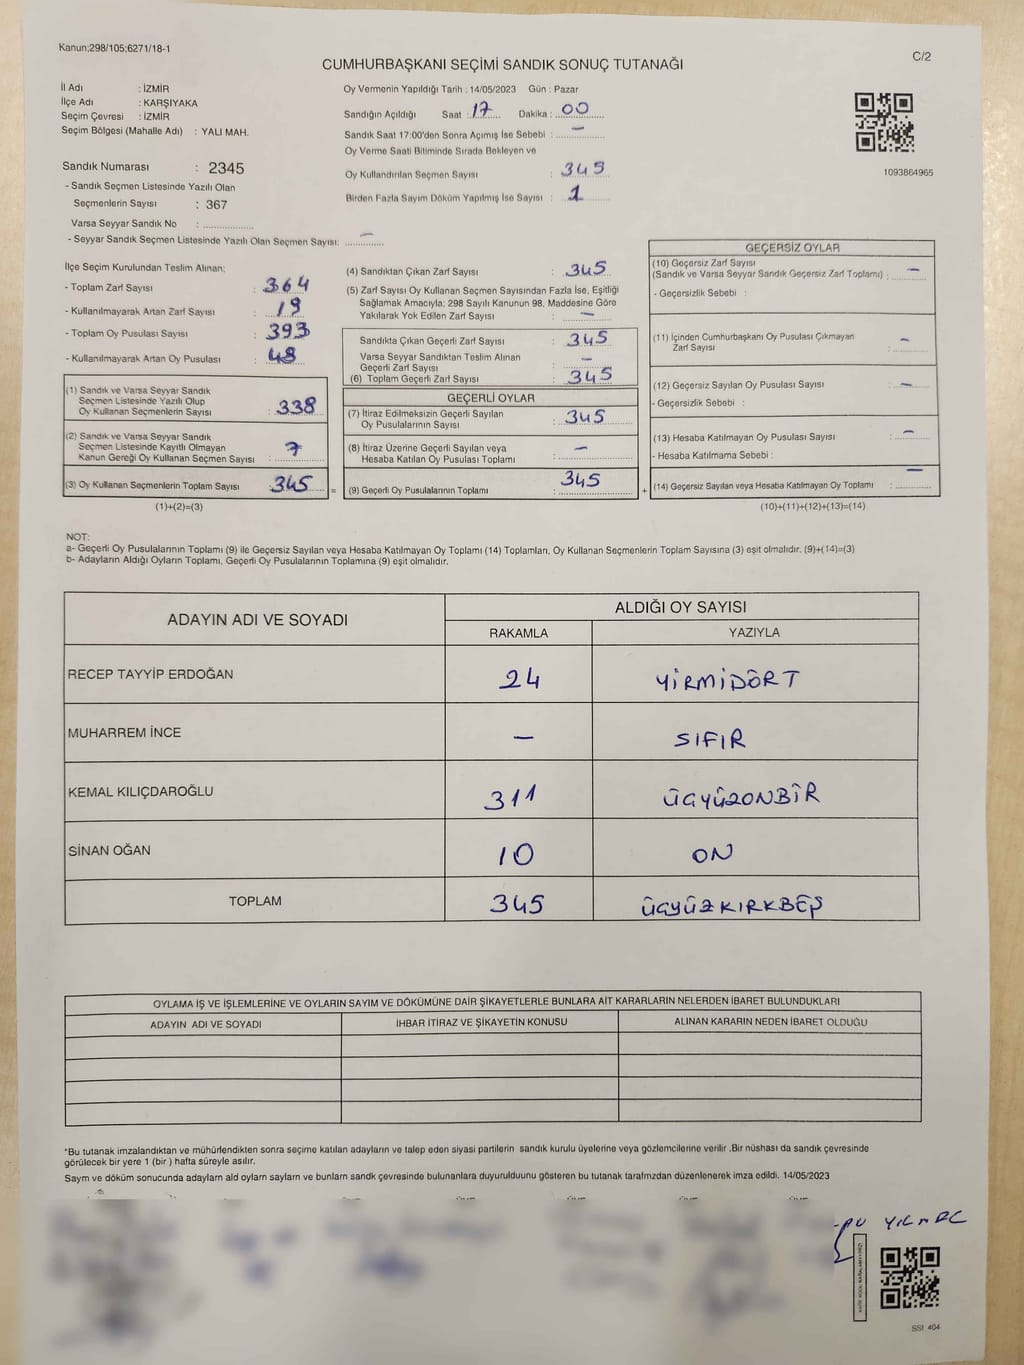 Kanun;298/105;6271/18-1
C/2
CUMHURBAŞKANI SEÇİMİ SANDIK SONUÇ TUTANAĞI
İl Adı : İZMİR
İlçe Adı : KARŞIYAKA
Seçim Çevresi : İZMİR
Seçim Bölgesi (Mahalle Adı) : YALI MAH.
Sandık Numarası : 2345
- Sandık Seçmen Listesinde Yazılı Olan
Seçmenlerin Sayısı : 367
Varsa Seyyar Sandık No :
- Seyyar Sandık Seçmen Listesinde Yazılı Olan Seçmen Sayısı: —
Oy Vermenin Yapıldığı Tarih : 14/05/2023 Gün : Pazar
Sandığın Açıldığı Saat : 17 Dakika : 00
Sandık Saat 17:00'den Sonra Açımış İse Sebebi : —
Oy Verme Saati Bitiminde Sırada Bekleyen ve
Oy Kullandırılan Seçmen Sayısı : 345
Birden Fazla Sayım Döküm Yapılmış İse Sayısı : 1
1093864965
İlçe Seçim Kurulundan Teslim Alınan:
- Toplam Zarf Sayısı : 364
- Kullanılmayarak Artan Zarf Sayısı : 19
- Toplam Oy Pusulası Sayısı : 393
- Kullanılmayarak Artan Oy Pusulası : 48
(1) Sandık ve Varsa Seyyar Sandık
Seçmen Listesinde Yazılı Olup
Oy Kullanan Seçmenlerin Sayısı : 338
(2) Sandık ve Varsa Seyyar Sandık
Seçmen Listesinde Kayıtlı Olmayan
Kanun Gereği Oy Kullanan Seçmen Sayısı : 7
(3) Oy Kullanan Seçmenlerin Toplam Sayısı : 345 =
(1)+(2)=(3)
(4) Sandıktan Çıkan Zarf Sayısı : 345
(5) Zarf Sayısı Oy Kullanan Seçmen Sayısından Fazla İse, Eşitliği
Sağlamak Amacıyla; 298 Sayılı Kanunun 98. Maddesine Göre
Yakılarak Yok Edilen Zarf Sayısı : —
Sandıkta Çıkan Geçerli Zarf Sayısı : 345
Varsa Seyyar Sandıktan Teslim Alınan
Geçerli Zarf Sayısı : —
(6) Toplam Geçerli Zarf Sayısı : 345
GEÇERLİ OYLAR
(7) İtiraz Edilmeksizin Geçerli Sayılan
Oy Pusulalarının Sayısı : 345
(8) İtiraz Üzerine Geçerli Sayılan veya
Hesaba Katılan Oy Pusulası Toplamı : —
(9) Geçerli Oy Pusulalarının Toplamı : 345 +
GEÇERSİZ OYLAR
(10) Geçersiz Zarf Sayısı
(Sandık ve Varsa Seyyar Sandık Geçersiz Zarf Toplamı) : —
- Geçersizlik Sebebi :
(11) İçinden Cumhurbaşkanı Oy Pusulası Çıkmayan
Zarf Sayısı : —
(12) Geçersiz Sayılan Oy Pusulası Sayısı : —
- Geçersizlik Sebebi :
(13) Hesaba Katılmayan Oy Pusulası Sayısı : —
- Hesaba Katılmama Sebebi :
(14) Geçersiz Sayılan veya Hesaba Katılmayan Oy Toplamı : —
(10)+(11)+(12)+(13)=(14)
NOT:
a- Geçerli Oy Pusulalarının Toplamı (9) ile Geçersiz Sayılan veya Hesaba Katılmayan Oy Toplamı (14) Toplamları, Oy Kullanan Seçmenlerin Toplam Sayısına (3) eşit olmalıdır. (9)+(14)=(3)
b- Adayların Aldığı Oyların Toplamı, Geçerli Oy Pusulalarının Toplamına (9) eşit olmalıdır.
ADAYIN ADI VE SOYADI ALDIĞI OY SAYISI
RAKAMLA YAZIYLA
RECEP TAYYİP ERDOĞAN 24 YİRMİDÖRT
MUHARREM İNCE — SIFIR
KEMAL KILIÇDAROĞLU 311 ÜÇYÜZONBİR
SİNAN OĞAN 10 ON
TOPLAM 345 ÜÇYÜZKIRKBEŞ
OYLAMA İŞ VE İŞLEMLERİNE VE OYLARIN SAYIM VE DÖKÜMÜNE DAİR ŞİKAYETLERLE BUNLARA AİT KARARLARIN NELERDEN İBARET BULUNDUKLARI
ADAYIN ADI VE SOYADI İHBAR İTİRAZ VE ŞİKAYETİN KONUSU ALINAN KARARIN NEDEN İBARET OLDUĞU
*Bu tutanak imzalandıktan ve mühürlendikten sonra seçime katılan adayların ve talep eden siyasi partilerin sandık kurulu üyelerine veya gözlemcilerine verilir .Bir nüshası da sandık çevresinde
görülecek bir yere 1 (bir ) hafta süreyle asılır.
Saym ve döküm sonucunda adaylarn ald oylarn saylarn ve bunlarn sandk çevresinde bulunanlara duyurulduunu gösteren bu tutanak tarafmzdan düzenlenerek imza edildi. 14/05/2023
SSI 404